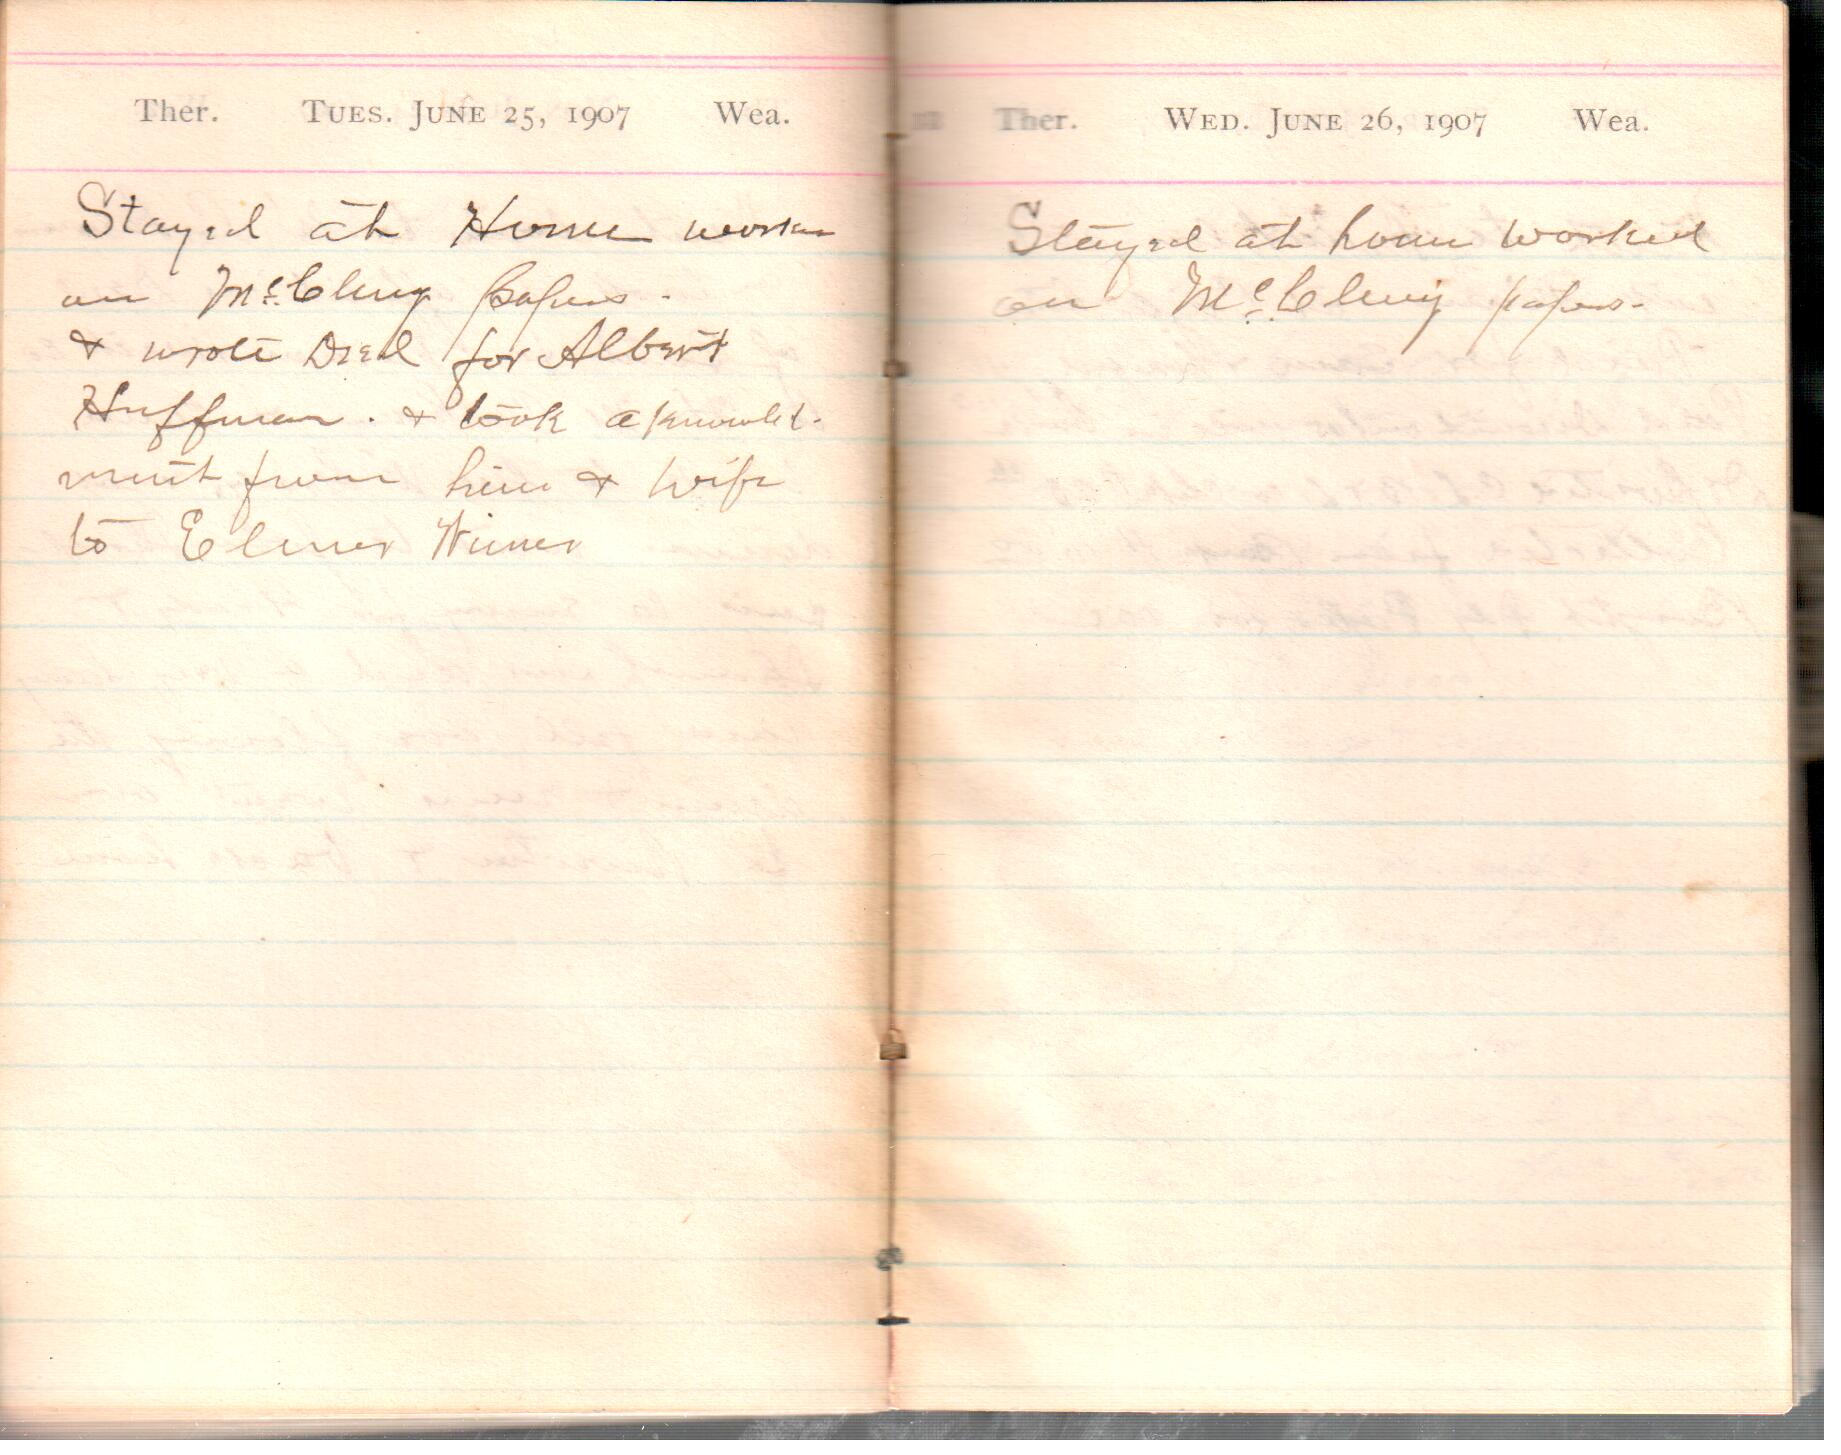 Ther. TUES. JUNE 25, 1907 Wea.
Stayed at Home worked
on McClung papers.
& wrote Deed for Albert
Huffman. & took aknowled-
ment from him & wife
to Elmer
Ther. WED. JUNE 26, 1907 Wea.
Stayed at home worked
on McClung papers.